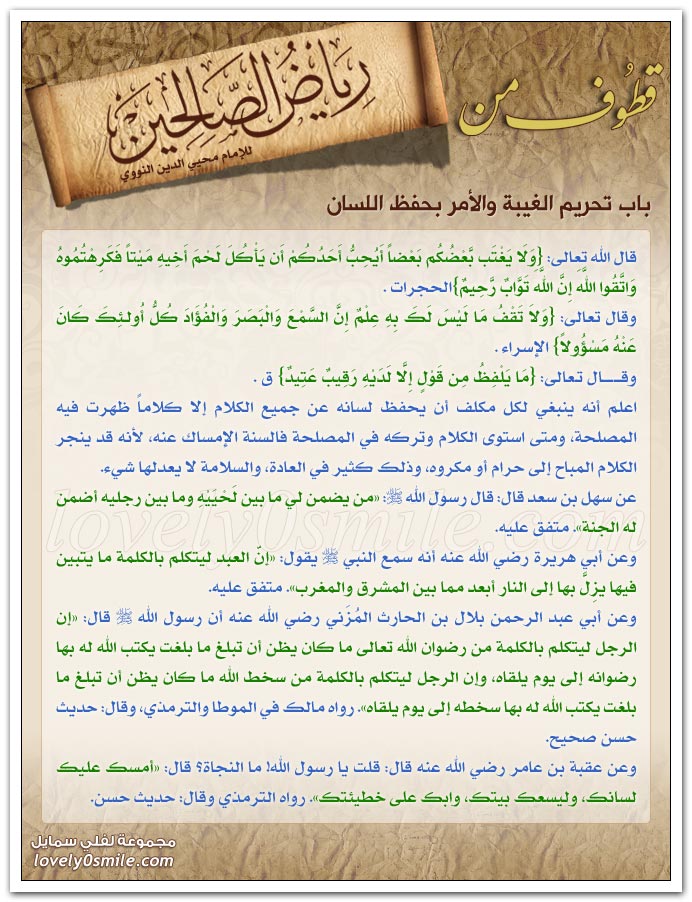 قطوف من
رياض الصالحين
للإمام محيي الدين النووي
باب تحريم الغيبة والأمر بحفظ اللسان
قال الله تعالى: {وَلَا يَغْتَب بَّعْضُكُم بَعْضاً أَيُحِبُّ أَحَدُكُمْ أَن يَأْكُلَ لَحْمَ أَخِيهِ مَيْتاً فَكَرِهْتُمُوهُ
وَاتَّقُوا اللَّهَ إِنَّ اللَّهَ تَوَّابٌ رَّحِيمٌ}الحجرات .
وقال تعالى: {وَلَا تَقْفُ مَا لَيْسَ لَكَ بِهِ عِلْمٌ إِنَّ السَّمْعَ وَالْبَصَرَ وَالْفُؤَادَ كُلُّ أُولـئِكَ كَانَ
عَنْهُ مَسْؤُولاً} الإسراء .
وقـــال تعالى: {مَا يَلْفِظُ مِن قَوْلٍ إِلَّا لَدَيْهِ رَقِيبٌ عَتِيدٌ} ق .
اعلم أنه ينبغي لكل مكلف أن يحفظ لسانه عن جميع الكلام إلا كلاماً ظهرت فيه
المصلحة، ومتى استوى الكلام وتركه في المصلحة فالسنة الإمساك عنه، لأنه قد ينجر
الكلام المباح إلى حرام أو مكروه، وذلك كثير في العادة، والسلامة لا يعدلها شيء.
عن سهل بن سعد قال: قال رسول الله ﷺ: «من يضمن لي ما بين لَحْيَيْهِ وما بين رجليه أضمن
له الجنة». متفق عليه.
وعن أبي هريرة رضي الله عنه أنه سمع النبي ﷺ يقول: «إنّ العبد ليتكلم بالكلمة ما يتبين
فيها يزِلُّ بها إلى النار أبعد مما بين المشرق والمغرب». متفق عليه.
وعن أبي عبد الرحمن بلال بن الحارث المُزَني رضي الله عنه أن رسول الله ﷺ قال: «إن
الرجل ليتكلم بالكلمة من رضوان الله تعالى ما كان يظن أن تبلغ ما بلغت يكتب الله له بها
رضوانه إلى يوم يلقاه، وإن الرجل ليتكلم بالكلمة من سخط الله ما كان يظن أن تبلغ ما
بلغت يكتب الله له بها سخطه إلى يوم يلقاه». رواه مالك في الموطا والترمذي، وقال: حديث
حسن صحيح.
وعن عقبة بن عامر رضي الله عنه قال: قلت يا رسول الله! ما النجاة؟ قال: «أمسك عليك
لسانك، وليسعك بيتك، وابك على خطيئتك». رواه الترمذي وقال: حديث حسن.
lovely0smile.com
مجموعة لفلي سمايل
lovely0smile.com